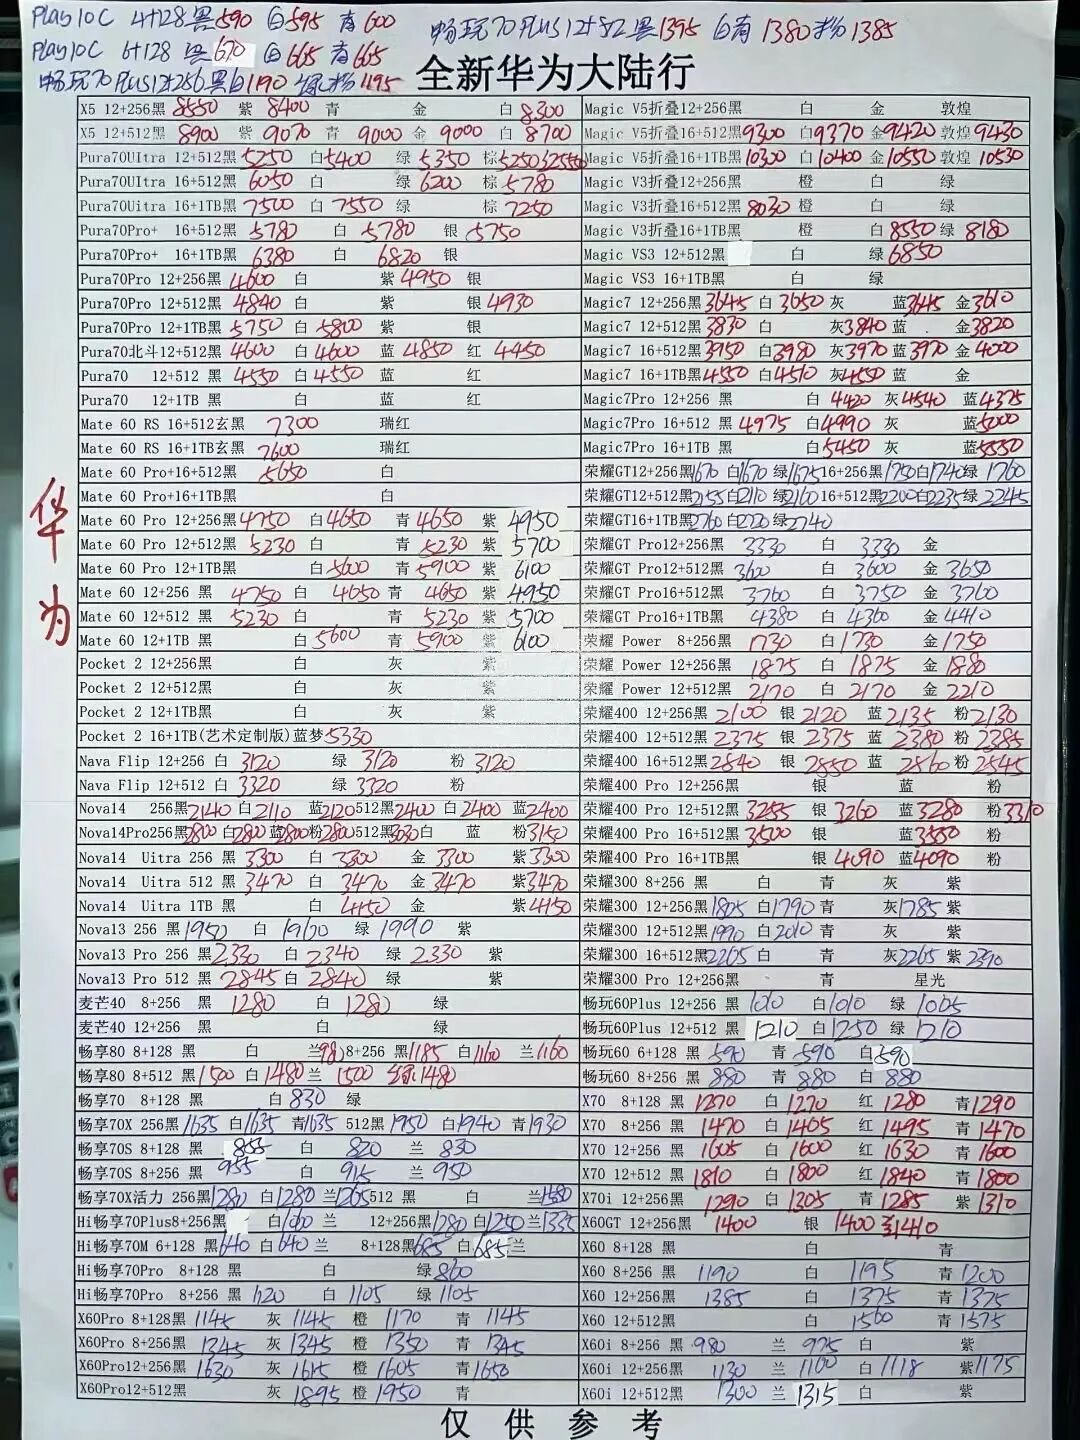 Play10C 4+128 黑590 白595 青600
畅玩70 Plus 12+512 黑1395 白青 1380 粉1385
Play10C 6+128 黑670 白665 青665
畅玩70 Plus 12+256 黑白1190 绿粉1195
全新华为大陆行
华为
X5 12+256黑 8550 紫 8400 青 金 白 8300
X5 12+512黑 8900 紫 9070 青 9000 金 9000 白 8700
Pura70UItra 12+512黑 5250 白5400 绿 5350 棕5250
Pura70UItra 16+512黑 6050 白 绿 6200 棕 5780
Pura70Uitra 16+1TB黑 7500 白 7550 绿 棕 7250
Pura70Pro+ 16+512黑 5780 白 5780 银 5750
Pura70Pro+ 16+1TB黑 6380 白 6820 银
Pura70Pro 12+256黑 4600 白 紫 4950 银
Pura70Pro 12+512黑 4840 白 紫 银 4930
Pura70Pro 12+1TB黑 5750 白 5800 紫 银
Pura70北斗12+512黑 4600 白 4600 蓝 4850 红 4450
Pura70 12+512 黑 4550 白 4550 蓝 红
Pura70 12+1TB 黑 白 蓝 红
Mate 60 RS 16+512玄黑 7300 瑞红
Mate 60 RS 16+1TB玄黑 7600 瑞红
Mate 60 Pro+16+512黑 5650 白
Mate 60 Pro+16+1TB黑 白
Mate 60 Pro 12+256黑 4750 白4650 青 4650 紫 4950
Mate 60 Pro 12+512黑 5230 白 青 5230 紫 5700
Mate 60 Pro 12+1TB黑 白5600 青 5900 紫 6100
Mate 60 12+256 黑 4750 白 4650 青 4650 紫 4950
Mate 60 12+512 黑 5230 白 青 5230 紫 5700
Mate 60 12+1TB 黑 白 5600 青 5900 紫 6100
Pocket 2 12+256黑 白 灰 紫
Pocket 2 12+512黑 白 灰 紫
Pocket 2 12+1TB黑 白 灰 紫
Pocket 2 16+1TB(艺术定制版)蓝梦5330
Nava Flip 12+256 白 3120 绿 3120 粉 3120
Nava Flip 12+512 白 3320 绿 3320 粉
Nova14 256黑2140 白2110 蓝2120 512黑2400 白2400 蓝2400
Nova14Pro256黑2800 白2800 蓝2800 粉2800 512黑3030 白 蓝 粉3150
Nova14 Uitra 256 黑 3300 白 3300 金 3300 紫3300
Nova14 Uitra 512 黑 3470 白 3470 金 3470 紫3470
Nova14 Uitra 1TB 黑 白 4150 金 紫4150
Nova13 256 黑1950 白 1960 绿 1990 紫
Nova13 Pro 256 黑2330 白 2340 绿 2330 紫
Nova13 Pro 512 黑 2845 白 2840 绿 紫
麦芒40 8+256 黑 1280 白 1280 绿
麦芒40 12+256 黑 白 绿
畅享80 8+128 黑 白 兰 8+256 黑1185 白1160 兰1160
畅享80 8+512 黑1500 白1480 兰 1500 绿1480
畅享70 8+128 黑 白 830 绿
畅享70X 256黑1635 白1635 青1635 512黑 1950 白1940 青1930
畅享70S 8+128 黑 855 白 820 兰 830
畅享70S 8+256 黑 955 白 915 兰 950
畅享70X活力 256黑1280 白1280 兰1265 512 黑 白 兰1580
Hi畅享70Plus8+256黑 白1000 兰 12+256黑1280 白1250 兰1335
Hi畅享70M 6+128 黑640 白640 兰 8+128黑685 白685兰
Hi畅享70Pro 8+128 黑 白 绿860
Hi畅享70Pro 8+256 黑 1120 白 1105 绿 1105
X60Pro 8+128黑 1145 灰 1145 橙 1170 青 1145
X60Pro 8+256黑 1345 灰 1345 橙 1350 青 1345
X60Pro12+256黑 1630 灰 1615 橙 1605 青1650
X60Pro12+512黑 灰 1895 橙 1950 青
Magic V5折叠12+256黑 白 金 敦煌
Magic V5折叠16+512黑9300 白9370 金9420 敦煌9430
Magic V5折叠16+1TB黑10300 白10400 金10550 敦煌 10530
Magic V3折叠12+256黑 橙 白 绿
Magic V3折叠16+512黑 8030 橙 白 绿
Magic V3折叠16+1TB黑 橙 白 8550 绿 8180
Magic VS3 12+512黑 白 绿 6850
Magic VS3 16+1TB黑 白 绿
Magic7 12+256黑3645 白 3650 灰 蓝3645 金3610
Magic7 12+512黑3830 白 灰3840 蓝 金3820
Magic7 16+512黑3950 白3980 灰3970 蓝3970 金4000
Magic7 16+1TB黑4550 白4510 灰4550 蓝 金
Magic7Pro 12+256 黑 白 4420 灰 4540 蓝4375
Magic7Pro 16+512 黑 4975 白4990 灰 蓝5000
Magic7Pro 16+1TB 黑 白5450 灰 蓝5550
荣耀GT12+256黑1670 白1670 绿1675 16+256黑1750 白1740绿 1760
荣耀GT12+512黑2155 白2110 绿2160 16+512黑2200 白2235 绿 2245
荣耀GT16+1TB黑2760 白2720 绿2740
荣耀GT Pro12+256黑 3330 白 3330 金
荣耀GT Pro12+512黑 3600 白 3600 金 3650
荣耀GT Pro16+512黑 3760 白 3750 金 3760
荣耀GT Pro16+1TB黑 4380 白 4360 金 4410
荣耀 Power 8+256黑 1730 白 1730 金 1750
荣耀 Power 12+256黑 1875 白 1875 金 1880
荣耀 Power 12+512黑 2170 白 2170 金 2210
荣耀400 12+256黑 2100 银 2120 蓝 2135 粉2130
荣耀400 12+512黑 2375 银 2375 蓝 2380 粉 2385
荣耀400 16+512黑 2840 银 2850 蓝 2860 粉 2845
荣耀400 Pro 12+256黑 银 蓝 粉
荣耀400 Pro 12+512黑 3255 银 3260 蓝3280 粉3310
荣耀400 Pro 16+512黑 3500 银 蓝3550 粉
荣耀400 Pro 16+1TB黑 银 4090 蓝4090 粉
荣耀300 8+256 黑 白 青 灰 紫
荣耀300 12+256黑1805 白1790 青 灰1785 紫
荣耀300 12+512黑1990 白2010 青 灰 紫
荣耀300 16+512黑2265 白 青 灰2265 紫 2390
荣耀300 Pro 12+256黑 青 星光
畅玩60Plus 12+256 黑 1010 白1010 绿 1005
畅玩60Plus 12+512 黑 1210 白1250 绿 1210
畅玩60 6+128 黑 590 青 590 白590
畅玩60 8+256 黑 880 青 880 白 880
X70 8+128 黑 1270 白 1270 红 1280 青1290
X70 8+256 黑 1470 白 1465 红 1495 青1470
X70 12+256 黑 1605 白 1600 红 1630 青1600
X70 12+512 黑 1810 白 1800 红 1840 青1800
X70i 12+256黑 1290 白 1305 青 1285 紫1310
X60GT 12+256黑 1400 银 1400 1410
X60 8+128 黑 白 青
X60 8+256 黑 1190 白 1195 青1200
X60 12+256 黑 1385 白 1375 青1375
X60 12+512黑 白 1560 青1575
X60i 8+256 黑 980 兰 975 白 紫
X60i 12+256黑 1130 兰 1100 白1118 紫1175
X60i 12+512黑 1300 兰 1315 白 紫
仅供参考